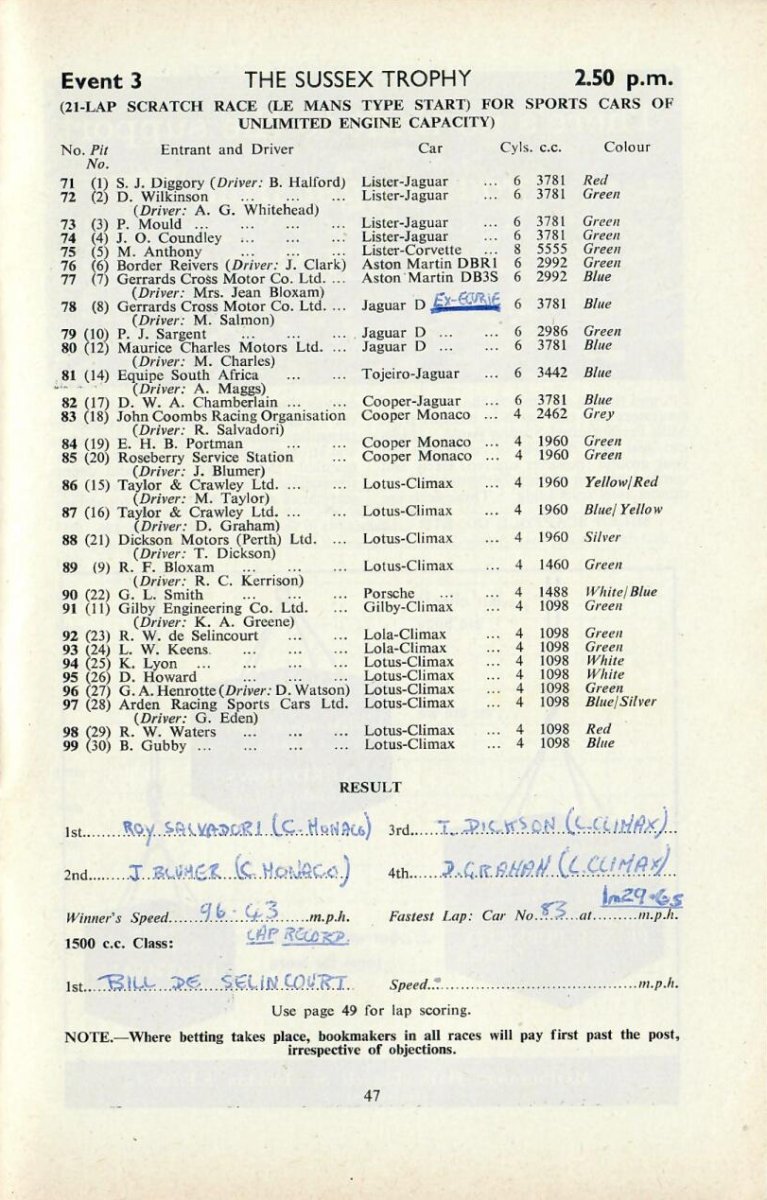 Event 3 THE SUSSEX TROPHY 2.50 p.m.
(21-LAP SCRATCH RACE (LE MANS TYPE START) FOR SPORTS CARS OF
UNLIMITED ENGINE CAPACITY)
No. Pit Entrant and Driver Car Cyls. c.c. Colour
No.
71 (1) S. J. Diggory (Driver: B. Halford) Lister-Jaguar ... 6 3781 Red
72 (2) D. Wilkinson ... ... ... Lister-Jaguar ... 6 3781 Green
(Driver: A. G. Whitehead)
73 (3) P. Mould ... ... ... ... Lister-Jaguar ... 6 3781 Green
74 (4) J. O. Coundley ... ... ... Lister-Jaguar ... 6 3781 Green
75 (5) M. Anthony ... ... ... Lister-Corvette ... 8 5555 Green
76 (6) Border Reivers (Driver: J. Clark) Aston Martin DBR1 6 2992 Green
77 (7) Gerrards Cross Motor Co. Ltd. ... Aston Martin DB3S 6 2992 Blue
(Driver: Mrs. Jean Bloxam)
78 (8) Gerrards Cross Motor Co. Ltd. ... Jaguar D EX-ECURIE 6 3781 Blue
(Driver: M. Salmon)
79 (10) P. J. Sargent ... ... ... Jaguar D ... ... 6 2986 Green
80 (12) Maurice Charles Motors Ltd. ... Jaguar D ... ... 6 3781 Blue
(Driver: M. Charles)
81 (14) Equipe South Africa ... ... Tojeiro-Jaguar ... 6 3442 Blue
(Driver: A. Maggs)
82 (17) D. W. A. Chamberlain ... ... Cooper-Jaguar ... 6 3781 Blue
83 (18) John Coombs Racing Organisation Cooper Monaco ... 4 2462 Grey
(Driver: R. Salvadori)
84 (19) E. H. B. Portman ... ... Cooper Monaco ... 4 1960 Green
85 (20) Roseberry Service Station ... Cooper Monaco ... 4 1960 Green
(Driver: J. Blumer)
86 (15) Taylor & Crawley Ltd. ... ... Lotus-Climax ... 4 1960 Yellow/Red
(Driver: M. Taylor)
87 (16) Taylor & Crawley Ltd. ... ... Lotus-Climax ... 4 1960 Blue/Yellow
(Driver: D. Graham)
88 (21) Dickson Motors (Perth) Ltd. ... Lotus-Climax ... 4 1960 Silver
(Driver: T. Dickson)
89 (9) R. F. Bloxam ... ... ... Lotus-Climax ... 4 1460 Green
(Driver: R. C. Kerrison)
90 (22) G. L. Smith ... ... ... Porsche ... ... 4 1488 White/Blue
91 (11) Gilby Engineering Co. Ltd. ... Gilby-Climax ... 4 1098 Green
(Driver: K. A. Greene)
92 (23) R. W. de Selincourt ... ... Lola-Climax ... 4 1098 Green
93 (24) L. W. Keens ... ... ... Lola-Climax ... 4 1098 Green
94 (25) K. Lyon ... ... ... ... Lotus-Climax ... 4 1098 White
95 (26) D. Howard ... ... ... Lotus-Climax ... 4 1098 White
96 (27) G. A. Henrotte (Driver: D. Watson) Lotus-Climax ... 4 1098 Green
97 (28) Arden Racing Sports Cars Ltd. Lotus-Climax ... 4 1098 Blue/Silver
(Driver: G. Eden)
98 (29) R. W. Waters ... ... ... Lotus-Climax ... 4 1098 Red
99 (30) B. Gubby ... ... ... ... Lotus-Climax ... 4 1098 Blue
RESULT
1st. ROY SALVADORI (C. MONACO) 3rd. T. DICKSON (L. CLIMAX)
2nd. J BLUMER (C. MONACO) 4th. D. GRAHAM (L. CLIMAX)
Winner's Speed 96.43 m.p.h. Fastest Lap: Car No. 83 at 1m29.6s m.p.h.
1500 c.c. Class: LAP RECORD.
1st. BILL DE SELINCOURT Speed m.p.h.
Use page 49 for lap scoring.
NOTE.—Where betting takes place, bookmakers in all races will pay first past the post,
irrespective of objections.
47